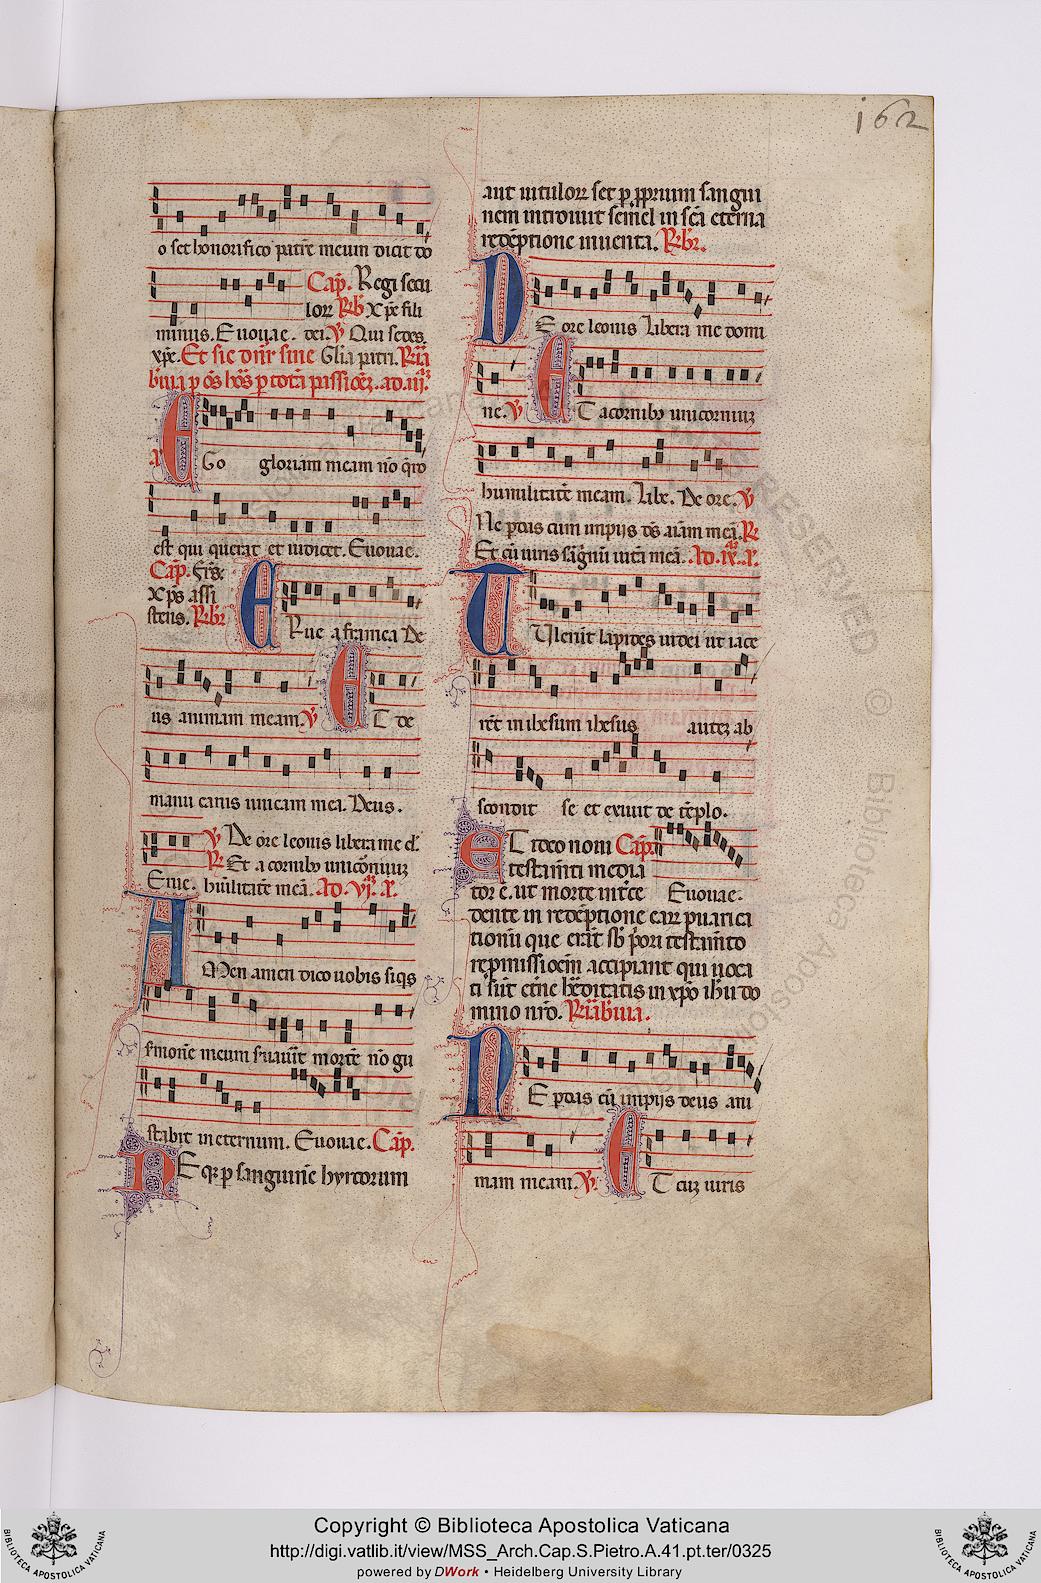 162
o set honorifico patrē meum dicit do
Cap̄. Regi secu
lorꝝ Rb̄r Xp̄e fili
minus. Euouae. dei. ℣ Qui sedes.
xp̄e. Et sic dn̄r sine Gl̄ia patri.
Go gloriam meam nō q̄ro
est qui querat et iudicet. Euouae.
Cap̄.
xp̄s assi
stens. Rb̄r
Rue a framea De
us animam meam. ℣ T de
manu canis unicam mea. Deus.
℣ De ore leonis libera me d.
℟ Et a cornibꝰ unicorniuꝫ
Erue. humilitatē meā. Ad. vi. a.
A Men amen dico uobis siq̄s
s̄monē meum s̄uauit̄ mortē nō gu
stabit in eternum. Euouae. Cap̄.
N Eqꝫ ꝑ sanguinē hyrcorum
aut uitulorꝝ set ꝑ ꝓprium sangui
nem introiuit semel in sc̄a eterna
redēptione inuenta. Rb̄r.
D E ore leonis Libera me domi
ne. ℣ E T a cornibꝰ unicorniuꝫ
humilitatē meam. Libe. De ore. ℣
Ne ꝑdas cum impijs ds̄ aīam meā. ℟
Et cū uiris sāguinū uitā meā. Ad. ix. a.
T Vlerūt lapides iudei ut iace
rēt in ihesum ihesus autē ab
scondit se et exiuit de tēplo.
E T ideo noui Cap̄.
testamti media
tor ē. ut morte int̄ce Euouae.
dente in redēptione earꝝ puarica
tionū que erāt sb̄ p̄ori testamto
repmissiōem accipiant qui uoca
ti sūt et̄ne hēditatis in xp̄o ihū do
mino nrō.
N E ꝑdas cū impijs deus ani
mam meam. ℣. E T cuꝫ uiris
Copyright © Biblioteca Apostolica Vaticana
http://digi.vatlib.it/view/MSS_Arch.Cap.S.Pietro.A.41.pt.ter/0325
powered by DWork • Heidelberg University Library